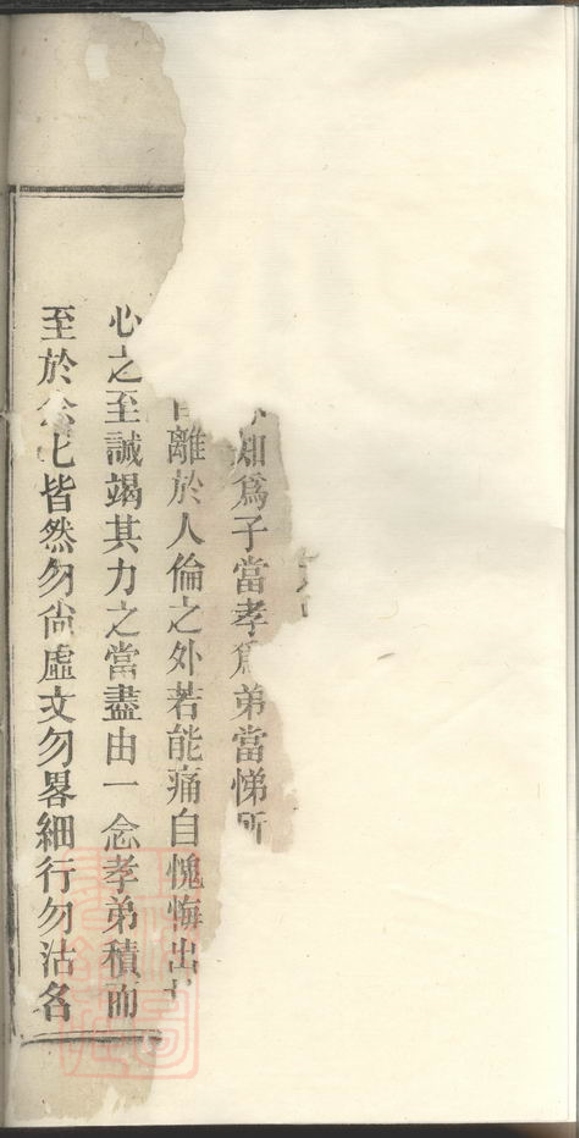 知爲子當孝爲弟當悌所
離於人倫之外若能痛自愧悔出
心之至誠竭其力之當盡由一念孝弟積而
至於念七皆然勿尙虛文勿畧細行勿沽名